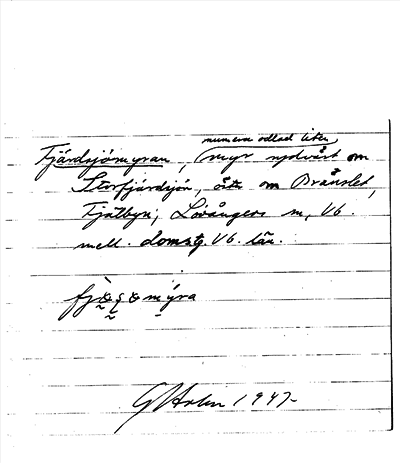 numera odlad liten
Fjärdsjömyran, (myr nydväst om
Storfjärdsjön, öster om Brånslet,
Fjätbyn, Lövångers sn, Vb.
mell. domstg. Vb. län.
myra
1947